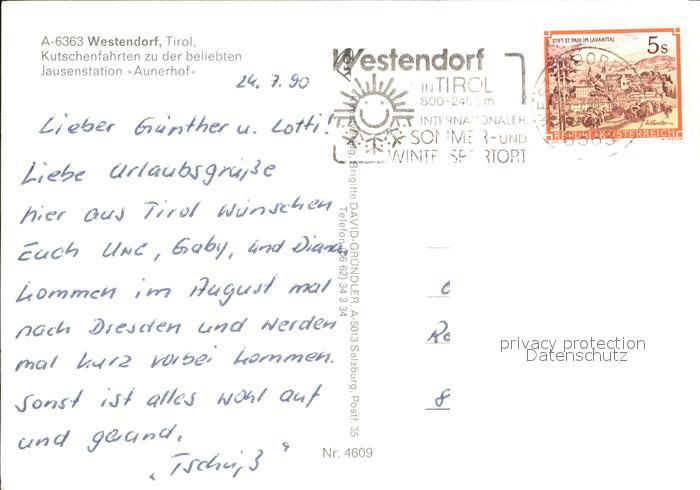 A-6363 Westendorf, Tirol,
Kutschenfahrten zu der beliebten
Jausenstation »Aunerhof«
24.7.90
Lieber Günther u. Lotti!
Liebe Urlaubsgrüße
hier aus Tirol wünschen
Euch Uwe, Gaby, und Diana
kommen im August mal
nach Dresden und werden
mal kurz vorbei kommen.
Sonst ist alles wohl auf
und gesund.
"Tschüß"
Westendorf
IN TIROL
800-2400 m
INTERNATIONALER
SOMMER-UND
WINTERSPORTORT
STIFT ST. PAUL IM LAVANTTAL
5s
REPUBLIK ÖSTERREICH
6363
Brigitte DAVID-GRÜNDLER, A-5013 Salzburg, Postf. 35
Telefon 06 62) 34 3 34
Nr. 4609
privacy protection
Datenschutz